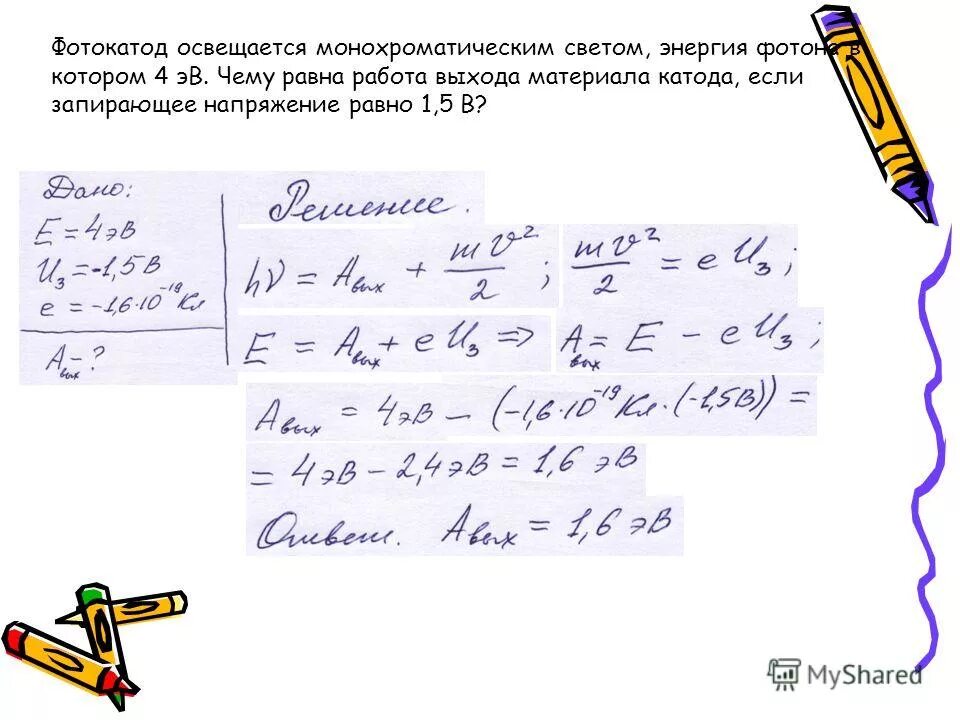 Фотокатод освещается монохроматическим светом, энергия фотона в
котором 4 эВ. Чему равна работа выхода материала катода, если
запирающее напряжение равно 1,5 В?
Дано:
E = 4 эВ
U₃ = -1,5 В
e = -1,6·10⁻¹⁹ Кл
Aвых - ?
Решение.
hν = Aвых + mv²/2 ; mv²/2 = e U₃ ;
E = Aвых + e U₃ => Aвых = E - e U₃ ;
Aвых = 4 эВ - (-1,6·10⁻¹⁹ Кл·(-1,5 В)) =
= 4 эВ - 2,4 эВ = 1,6 эВ
Ответ. Aвых = 1,6 эВ
MyShared